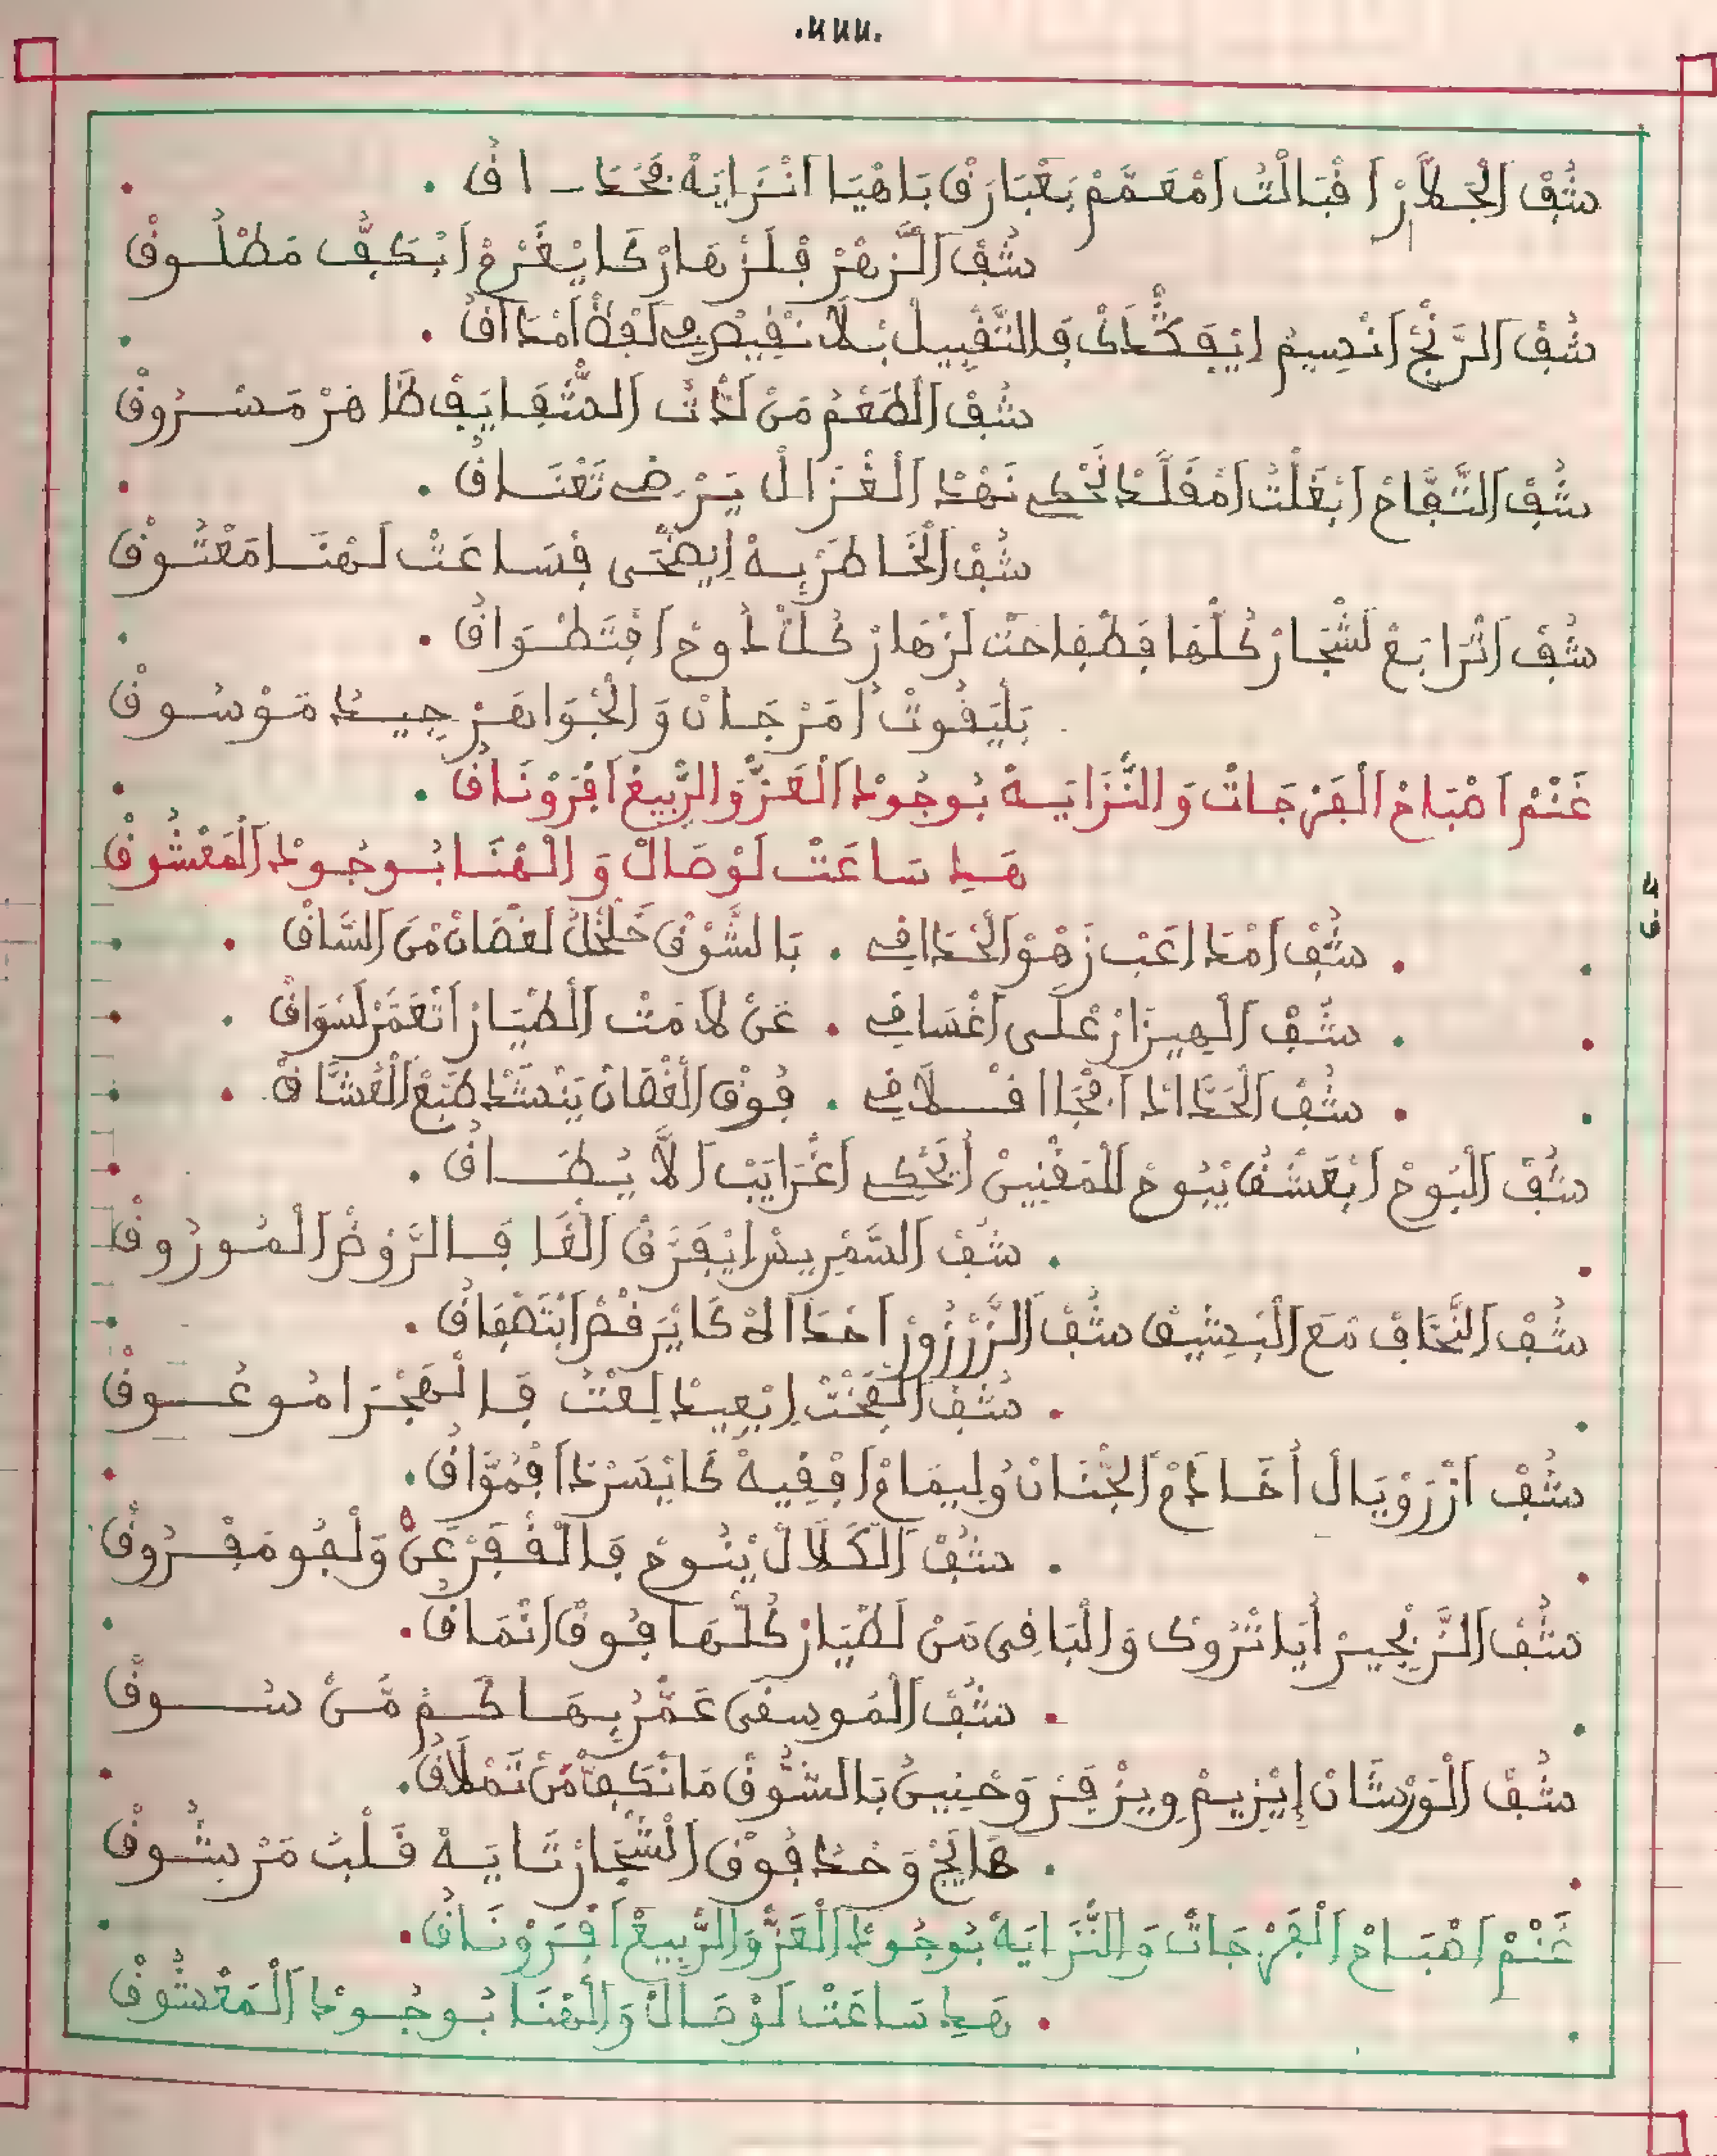 شُفْ الْجَلَّارْ اَقْبَالْتُ اَمْعَمَّمْ بَعْبَارَقْ بَاهْيَا اَنْزَايَهْ فْحْدَاقُ .
شُفْ الزَّهْرْ فْلَزْهَارْ كَا يْفَرْغْ اَبْكَفُّ مَطْلُوقْ
شُفْ الرَّنْجْ اَنْسِيمُ فَالتَّقْبِيلْ بْلَا امْدَاقُ .
شُفْ الطَّعْمُ مَنْ لَدَّتْ الشّْفَايَفْ ظَاهَرْ مَشْرُوقْ
شُفْ التَّفَّاحْ اَبْغَلْتُ اَمْقَلَّدْ يَحْكِي نَهْدْ الْغْزَالْ يَرْضِي تَعْنَاقُ .
شُفْ الْخَاطَرْ بِهْ اِيضْحَى فْسَاعَتْ لَهْنَا مَعْتُوقْ
شُفْ اَتْرَابَعْ لَشْجَارْ كُلّْهَا لَزْهَارْ كُلْ دُوحْ اَفْتَطْوَاقُ .
بَلْيَقُوتْ اُمَرْجَانْ وَالْجْوَاهَرْ جِيدْ مَوْسُوقْ
غَنْمْ اَصْبَاحْ الْفَرْجَاتْ وَالنّْزَايَهْ بُوجُودْ الْعَزّْ وَالرّْبِيعْ اَفْرَوْنَاقُ .
هَدِ سَاعَتْ لَوْصَالْ وَالْهْنَا بُوجُودْ الْمَعْشُوقْ
. شُفْ اَمْدَاعَبْ زَهْوْ الْحْدَاقِي . بَالشَّوْقْ خَلْخَلْ لَغْصَانْ مْنَ السَّاقْ .
. شُفْ الْهِيزَارْ عْلَى اَغْسَاقِي . عَنْ لَامَتْ الطّْيَارْ اَتْعَمَّرْ لَسْوَاقْ .
. شُفْ الْحَدَّادْ اَفْجَا اَقْلَاقِي . فُوقْ الْغْصَانْ يَنْشَدْ طَبْعْ الْعُشَّاقْ .
شُفْ الْبُوحْ اَبْعَشْقُ يْبُوحْ لَلْمَغْنِينْ اُيَحْكِي اَغْرَايَبْ اَلَّا يُطَاقُ .
. شُفْ السَّمْرِيسْ اِيْفَرَّقْ الْغَا فَالرَّوْضْ الْمُورُوقْ
شُفْ النَّحَّافْ مَعَ الْبَشِيقْ شُفْ الزَّرْزُورْ اَحْدَاهْ كَا يَرْقُصْ اَبْتَصْفَاقُ .
. شُفْ الْفَخْتْ اِبْعِيدْ لِعْتُ فَالْهَجْرَا مُوعُوقْ
شُفْ اَزْرَوْيَالْ اُخَادَمْ الْجْنَانْ وُلِيمَامْ اَفْقِيهْ كَا يْسَرْدْ اَفْمُوَّاقُ .
. شُفْ الْكَلَالْ يْنُوحْ فَالْقْفَرْ عَنْ وَلْفُو مَفْرُوقْ
شُفْ اُيَا تْرُوكْ وَالْبَاقِي مَنْ لَطْيَارْ كُلّْهَا فُوقْ اَنْمَاقُ .
. شُفْ الْمُوسِقَى عَمَّرْ بِهَا كَمْ مَنْ سُوقْ
شُفْ الْوَرْشَانْ اِيْزِيمْ وِيزْفَرْ وَحْنِينُ بَالشُّوقْ مَا نْكَفْ مَنْ تَمْلَاقُ .
. هَايَجْ وَحْدُ فُوقْ الشْجَارْ تَايَهْ قَلْبُ مَرْشُوقْ
غَنْمْ اَصْبَاحْ الْفَرْجَاتْ وَالنّْزَايَهْ بُوجُودْ الْعَزّْ وَالرّْبِيعْ اَفْرَوْنَاقُ .
. هَدِ سَاعَتْ لَوْصَالْ وَالْهْنَا بُوجُودْ الْمَعْشُوقْ